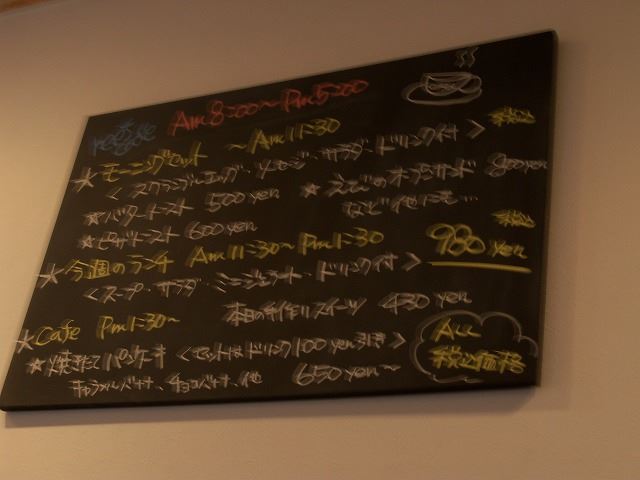 Am 8:00～Pm 5:00
☆モーニングセット ～Am 11:30 税込
＜スクランブルエッグ・ソーセージ・サラダ・ドリンク付＞
☆バタートースト 500yen ☆えびのオープンサンド 800yen
☆ピザトースト 600yen など他にも…
☆今週のランチ Am 11:30～Pm 1:30 税込 980 yen
＜スープ・サラダ・ミニジェラート・ドリンク付＞
本日の手作りスイーツ 430 yen
☆Cafe Pm 1:30～
☆焼きたてパンケーキ ＜セットはドリンク100yen引き＞
キャラメルバナナ、チョコバナナ、他 650 yen～
ALL
税込価格